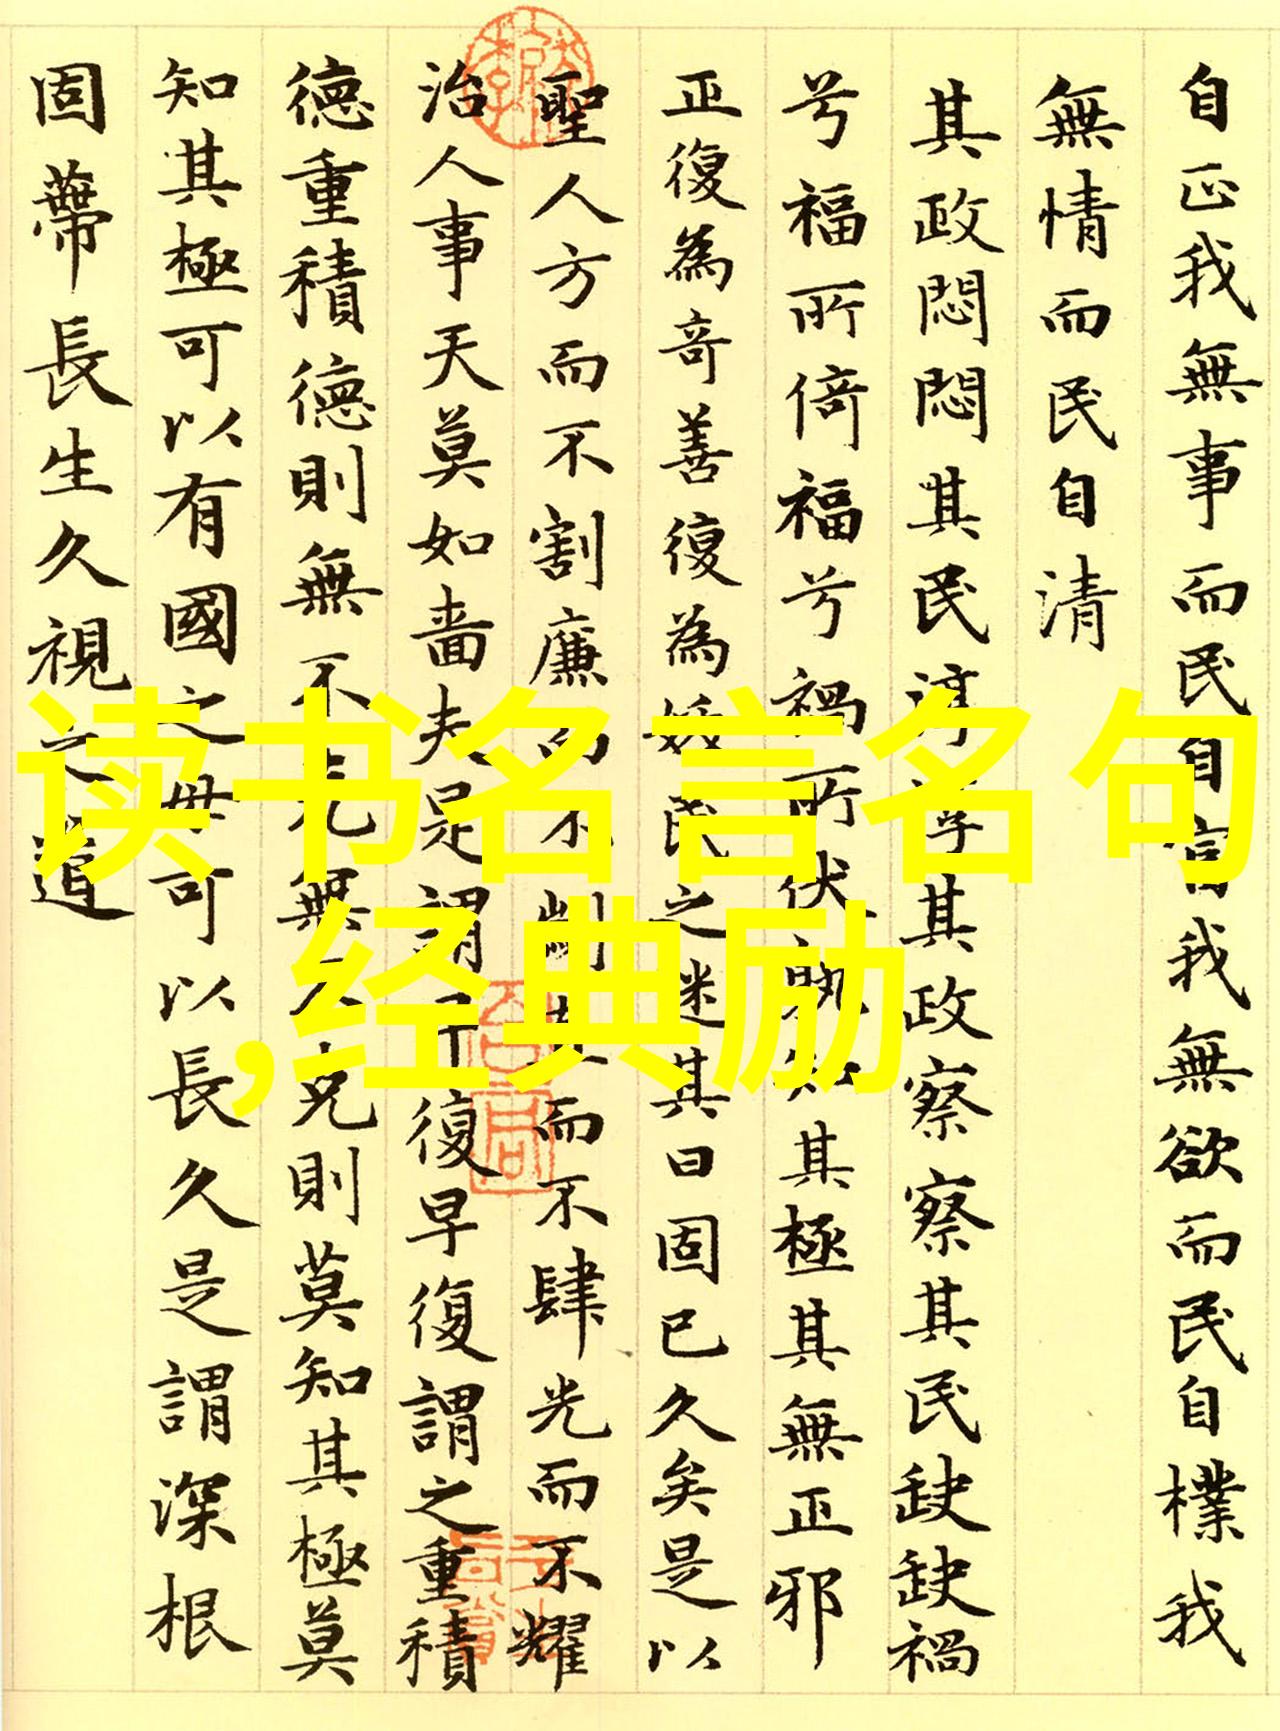 自正我無事而民自富我無欲而民自樸我
無情而民自清
其政悶悶其民淳淳其政察察其民缺缺禍
兮福所倚福兮禍所伏孰知其極其無正邪
正復為奇善復為妖民之迷其日固已久矣是以
聖人方而不割廉而不劌直而不肆光而不耀
治人事天莫如嗇夫是謂早復早復謂之重積
德重積德則無不克無不克則莫知其極莫
知其極可以有國之母可以長久是謂深根
固蔕長生久視之道
读书名言名句
,经典励